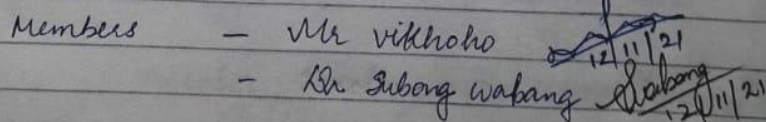 Members - Mr vikhoho 12/11/21
- Dr Subong wabang Swabang 12/11/21